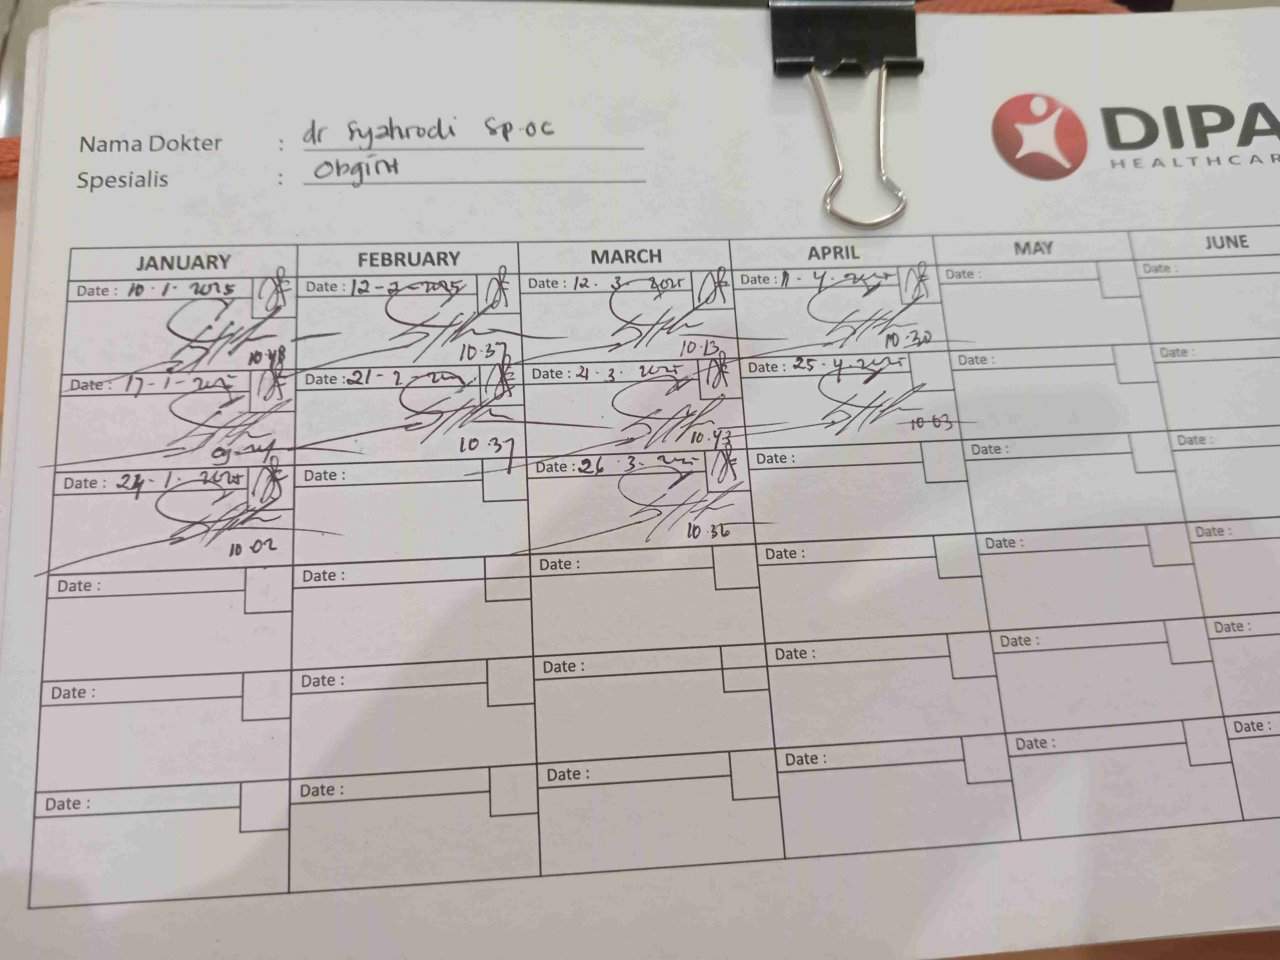 Nama Dokter : dr Syahrodi Sp.OG
Spesialis : Obgin
DIPA
HEALTHCAR
JANUARY FEBRUARY MARCH APRIL MAY JUNE
Date : 10-1-2025 Date : 12-2-2025 Date : 12.3.2025 Date : 11.4.2025 Date : Date :
10.48 10.37 10.13 10.30
Date : 17-1-2025 Date : 21-2-2025 Date : 21.3.2025 Date : 25.4.2025 Date : Date :
10.37 10.43 10.03
Date : 24-1-2025 Date : Date : 26.3.2025 Date : Date : Date :
10.02 10.36
Date : Date : Date : Date : Date : Date :
Date : Date : Date : Date : Date : Date :
Date : Date : Date : Date : Date : Date :